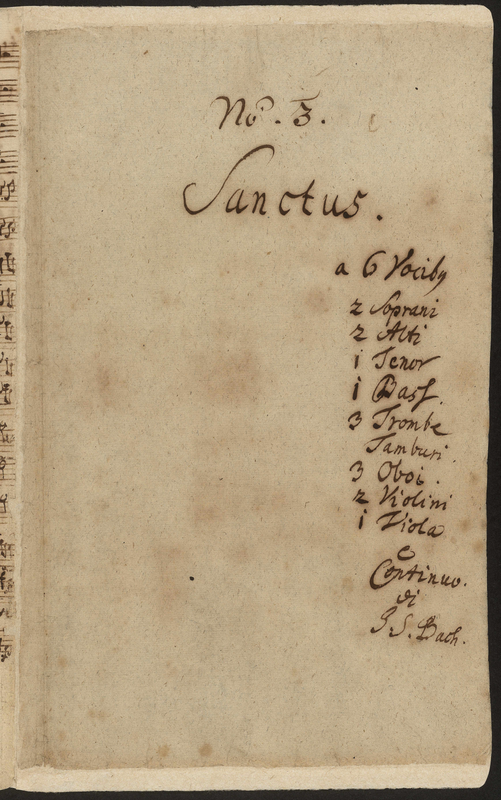 No. 3.
Sanctus.
a 6 Vocibg
2 Soprani
2 Alti
1 Tenor
1 Bass.
3 Trombe
Tamburi.
3 Oboi.
2 Violini
1 Viola
e
Continuo.
di
J. S. Bach.